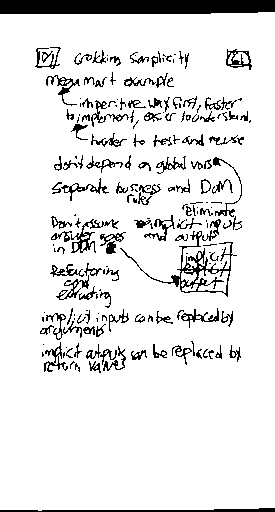 Grokking Simplicity
mega mart example
imperitive way first, faster
to implement, easier to understand.
harder to test and reuse
don't depend on global vars
Separate business and DOM
rules
eliminate
Don't assume implicit inputs
answer goes and outputs
in DOM
implicit
output
Refactoring
and
extracting
implicit inputs can be replaced by
arguments
implicit outputs can be replaced by
return values